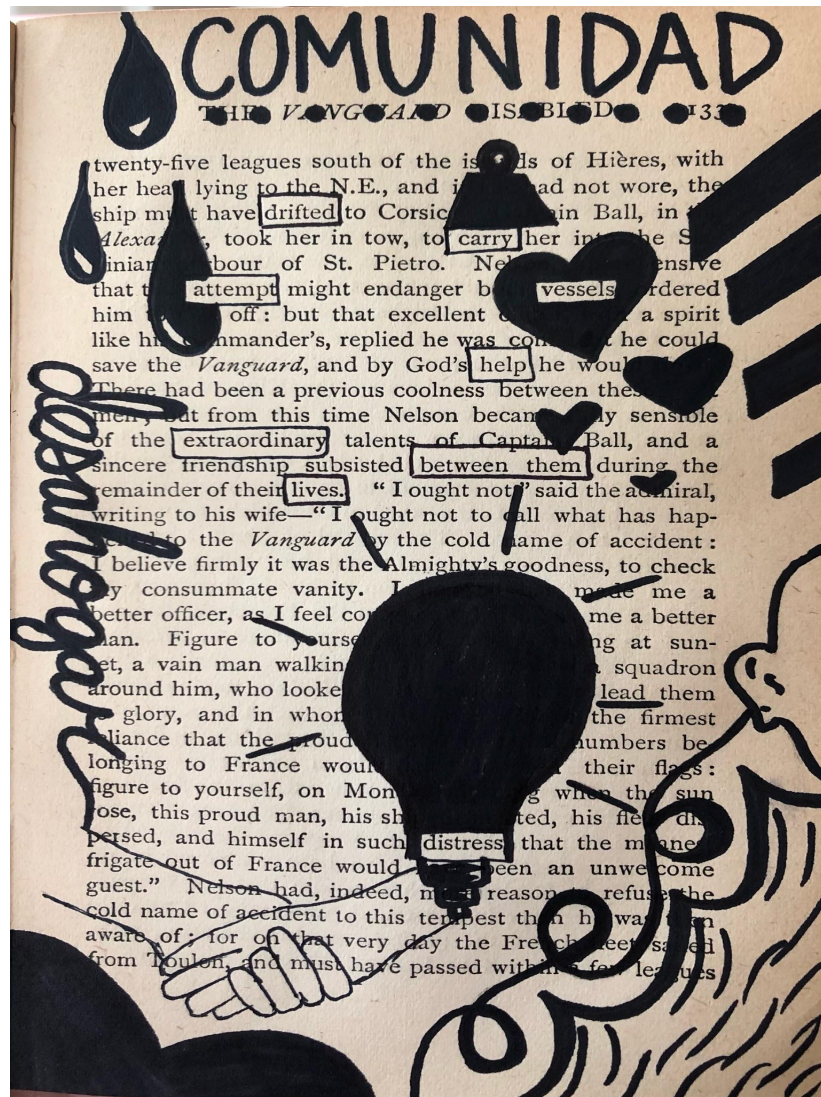 COMUNIDAD
THE VANGUARD DISABLED 133
twenty-five leagues south of the is ds of Hières, with
her head lying to the N.E., and i had not wore, the
ship must have drifted to Corsic ain Ball, in
Alexa , took her in tow, to carry her into the S
inian bour of St. Pietro. Ne ensive
that t attempt might endanger b vessels rdered
him off: but that excellent a spirit
like h mmander's, replied he was con he could
save the Vanguard, and by God's help he would
There had been a previous coolness between these
men; but from this time Nelson became ly sensible
of the extraordinary talents of Captain Ball, and a
sincere friendship subsisted between them during the
remainder of their lives. "I ought not," said the admiral,
writing to his wife—"I ought not to call what has hap-
pened to the Vanguard by the cold name of accident:
I believe firmly it was the Almighty's goodness, to check
my consummate vanity. I made me a
better officer, as I feel con me a better
man. Figure to yourse ng at sun-
set, a vain man walkin a squadron
around him, who looke lead them
to glory, and in whom the firmest
reliance that the proud numbers be-
longing to France would their flags:
figure to yourself, on Mon g when the sun
rose, this proud man, his sh ted, his fleet dis-
persed, and himself in such distress that the meanest
frigate out of France would been an unwelcome
guest." Nelson had, indeed, more reason to refuse the
cold name of accident to this tempest than he was then
aware of; for on that very day the French fleet sailed
from Toulon, and must have passed within a few leagues
desahogar